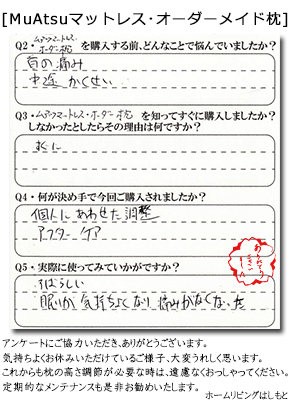 [MuAtsuマットレス・オーダーメイド枕]
Q2・ムアツマットレス・オーダー枕 を購入する前、どんなことで悩んでいましたか？
首の痛み
中途かくせい
Q3・ムアツマットレス・オーダー枕 を知ってすぐに購入しましたか？
しなかったとしたらその理由は何ですか？
すぐに
Q4・何が決め手で今回ご購入されましたか？
個人にあわせた調整
アフターケア
Q5・実際に使ってみていかがですか？
すばらしい
眠りが気持ちよくなり 痛みがなくなった
アンケートにご協力いただき、ありがとうございます。
気持ちよくお休みいただけているご様子、大変うれしく思います。
これからも枕の高さ調節が必要な時は、遠慮なくおっしゃってください。
定期的なメンテナンスも是非お勧めいたします。
ホームリビングはしもと